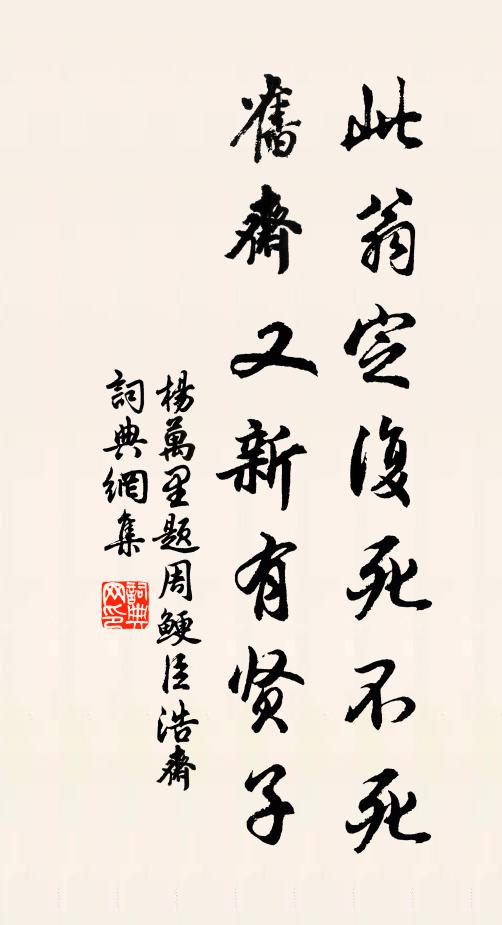 此翁定復死不死
舊齋又新有贤子
楊萬里题周鲠臣浩齋
詞典網集
詞典网印